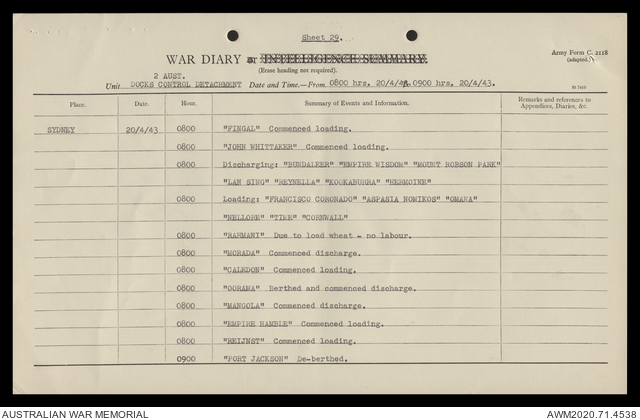 Sheet 29.
WAR DIARY or INTELLIGENCE SUMMARY.
Army Form C. 2118
(adapted.)
(Erase heading not required).
2 AUST.
Unit DOCKS CONTROL DETACHMENT Date and Time.—From 0800 hrs. 20/4/43 to 0900 hrs. 20/4/43.
Place. Date. Hour. Summary of Events and Information. Remarks and references to Appendices, Diaries, &c.
SYDNEY 20/4/43 0800 "FINGAL" Commenced loading.
0800 "JOHN WHITTAKER" Commenced loading.
0800 Discharging: "BUNDALEER" "EMPIRE WISDOM" "MOUNT ROBSON PARK"
"LAN SING" "REYNELLA" "KOOKABURRA" "HERMOINE"
0800 Loading: "FRANCISCO CORONADO" "ASPASIA NOMIKOS" "OMANA"
"NELLORE" "TIME" "CORNWALL"
0800 "RAHMANI" Due to load wheat - no labour.
0800 "MORADA" Commenced discharge.
0800 "CALEDON" Commenced loading.
0800 "OORAMA" Berthed and commenced discharge.
0800 "MANGOLA" Commenced discharge.
0800 "EMPIRE HAMBLE" Commenced loading.
0800 "REIJNST" Commenced loading.
0900 "PORT JACKSON" De-berthed.
AUSTRALIAN WAR MEMORIAL AWM2020.71.4538